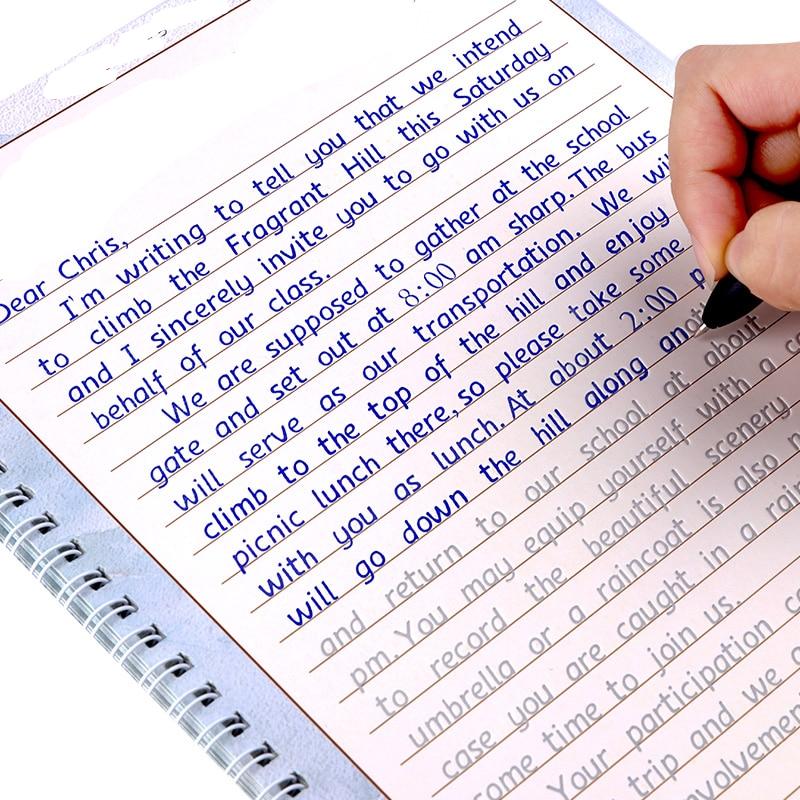 Dear Chris,
I'm writing to tell you that we intend
to climb the Fragrant Hill this Saturday
and I sincerely invite you to go with us on
behalf of our class.
We are supposed to gather at the school
gate and set out at 8:00 am sharp. The bus
will serve as our transportation. We wil
climb to the top of the hill and enjoy
picnic lunch there, so please take some
with you as lunch. At about 2:00 p
will go down the hill along anot
and return to our school at about
pm. You may equip yourself with a ca
to record the beautiful scenery
umbrella or a raincoat is also
case you are caught in a rain
some time to join us.
Your participation
trip and we
nvolvemen